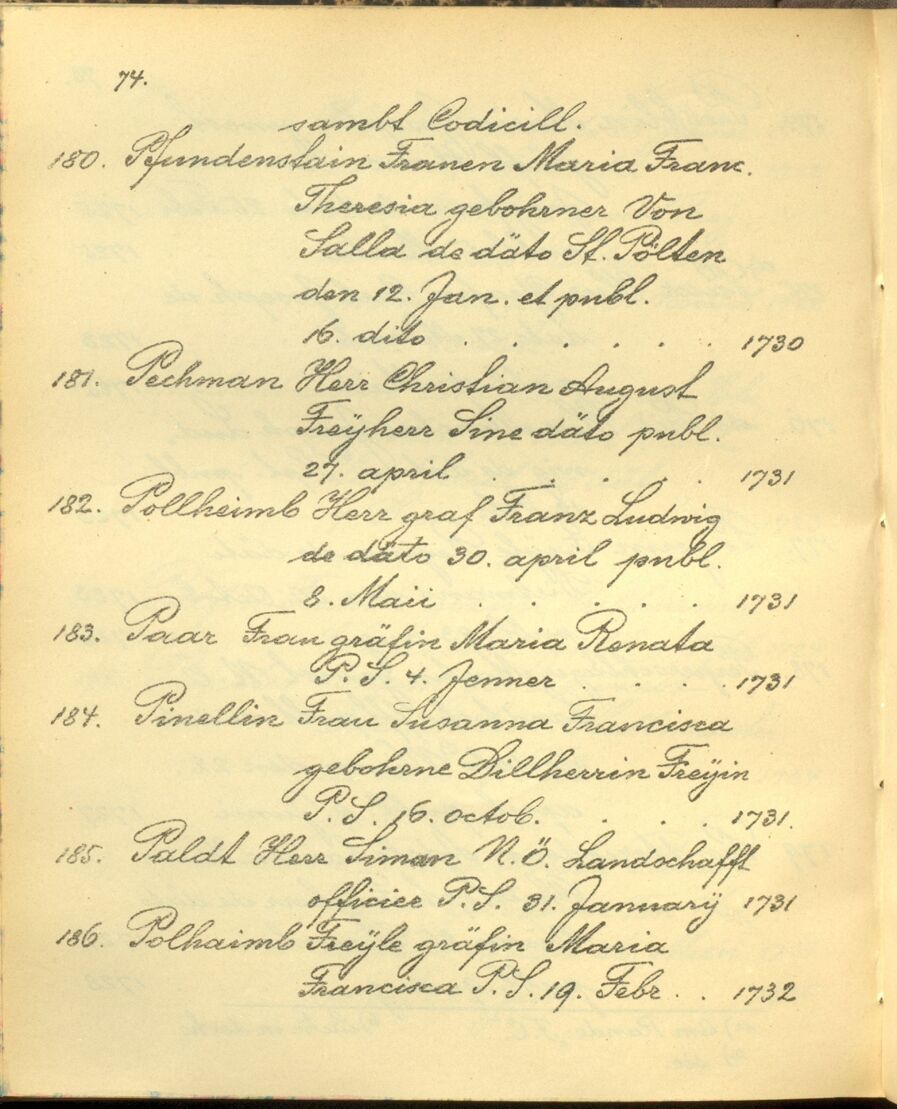 74.
sambt Codicill.
180. Pfundenstain Frauen Maria Franc.
Theresia gebohrner Von
Salla de däto St. Pölten
den 12. Jan. et publ.
16. dito . . . . . . 1730
181. Pechman Herr Christian August
Freÿherr Sine däto publ.
27. april . . . . . 1731
182. Pollheimb Herr graf Franz Ludwig
de däto 30. april publ.
8. Maii . . . . . 1731
183. Paar Frau gräfin Maria Renata
P. S. 4. Jenner . . . . 1731
184. Pinellin Frau Susanna Francisca
gebohrne Dillherrin Freÿin
P. S. 16. octob. . . . . 1731.
185. Paldt Herr Siman N. Ö. Landschafft
officier P. S. 31. Januarÿ 1731
186. Polhaimb Freÿle gräfin Maria
Francisca P. S. 19. Febr . . 1732